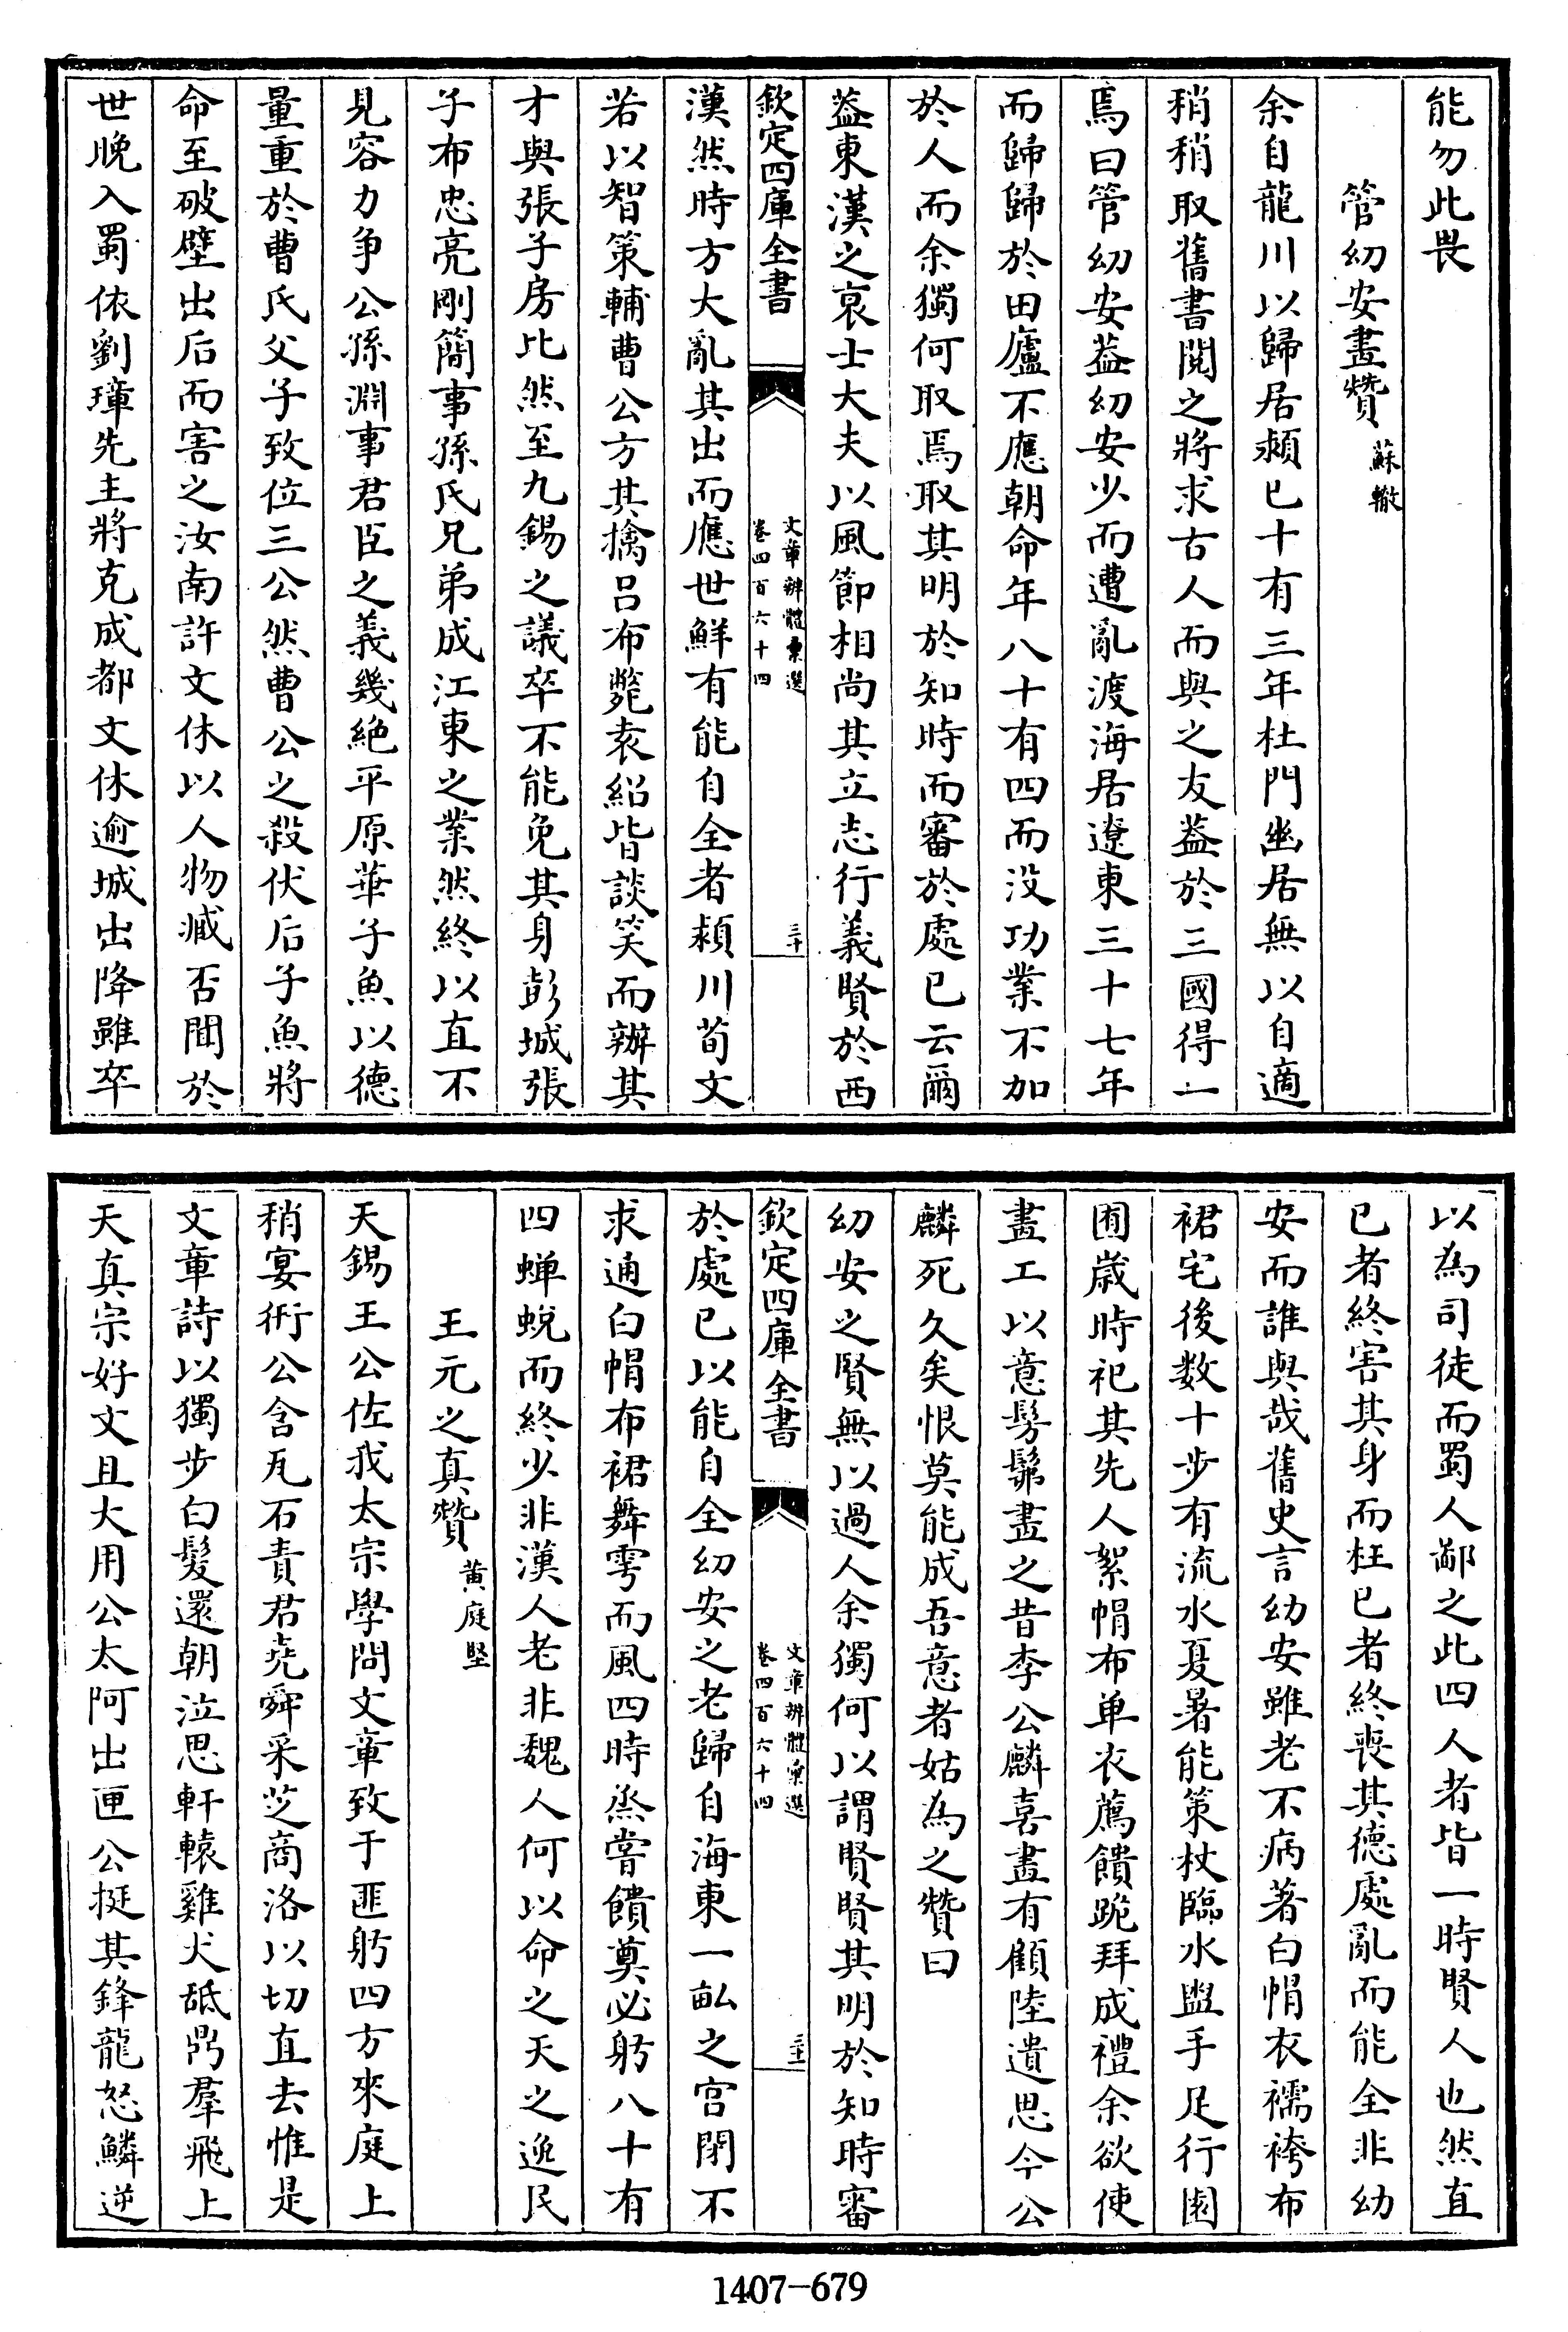 能勿此畏
管幼安畫贊 蘇轍
余自龍川以歸居潁已十有三年杜門幽居無以自適
稍稍取舊書閱之將求古人而與之友葢於三國得一
焉曰管幼安葢幼安少而遭亂渡海居遼東三十七年
而歸歸於田廬不應朝命年八十有四而沒功業不加
於人而余獨何取焉取其明於知時而審於處已云爾
葢東漢之衰士大夫以風節相尚其立志行義賢於西
欽定四庫全書 文章辨體彙選 卷四百六十四 三十
漢然時方大亂其出而應世鮮有能自全者潁川荀文
若以智策輔曹公方其擒呂布斃袁紹皆談笑而辦其
才與張子房比然至九錫之議卒不能免其身彭城張
子布忠亮剛簡事孫氏兄弟成江東之業然終以直不
見容力争公孫淵事君臣之義幾絶平原華子魚以德
量重於曹氏父子致位三公然曹公之殺伏后子魚將
命至破壁出后而害之汝南許文休以人物臧否聞於
世晚入蜀依劉璋先主將克成都文休逾城出降雖卒
以為司徒而蜀人鄙之此四人者皆一時賢人也然直
已者終害其身而枉已者終喪其德處亂而能全非幼
安而誰與哉舊史言幼安雖老不病著白帽衣襦袴布
裙宅後数十步有流水夏暑能策杖臨水盥手足行園
囿歲時祀其先人絮帽布单衣薦饋跪拜成禮余欲使
畫工以意髣髴畫之昔李公麟喜畫有顧陸遺思今公
麟死久矣恨莫能成吾意者姑為之贊曰
幼安之賢無以過人余獨何以謂賢賢其明於知時審
欽定四庫全書 文章辨體彙選 卷四百六十四 三十一
於處已以能自全幼安之老歸自海東一畝之宫閉不
求通白帽布裙舞雩而風四時烝嘗饋奠必躬八十有
四蟬蛻而終少非漢人老非魏人何以命之天之逸民
王元之真贊 黄庭堅
天錫王公佐我太宗學問文章致于匪躬四方來庭上
稍宴衎公含瓦石責君堯舜采芝商洛以切直去惟是
文章詩以獨步白髮還朝泣思軒轅雞犬舐鼎羣飛上
天真宗好文且大用公太阿出匣公挺其鋒龍怒鱗逆
1407-679